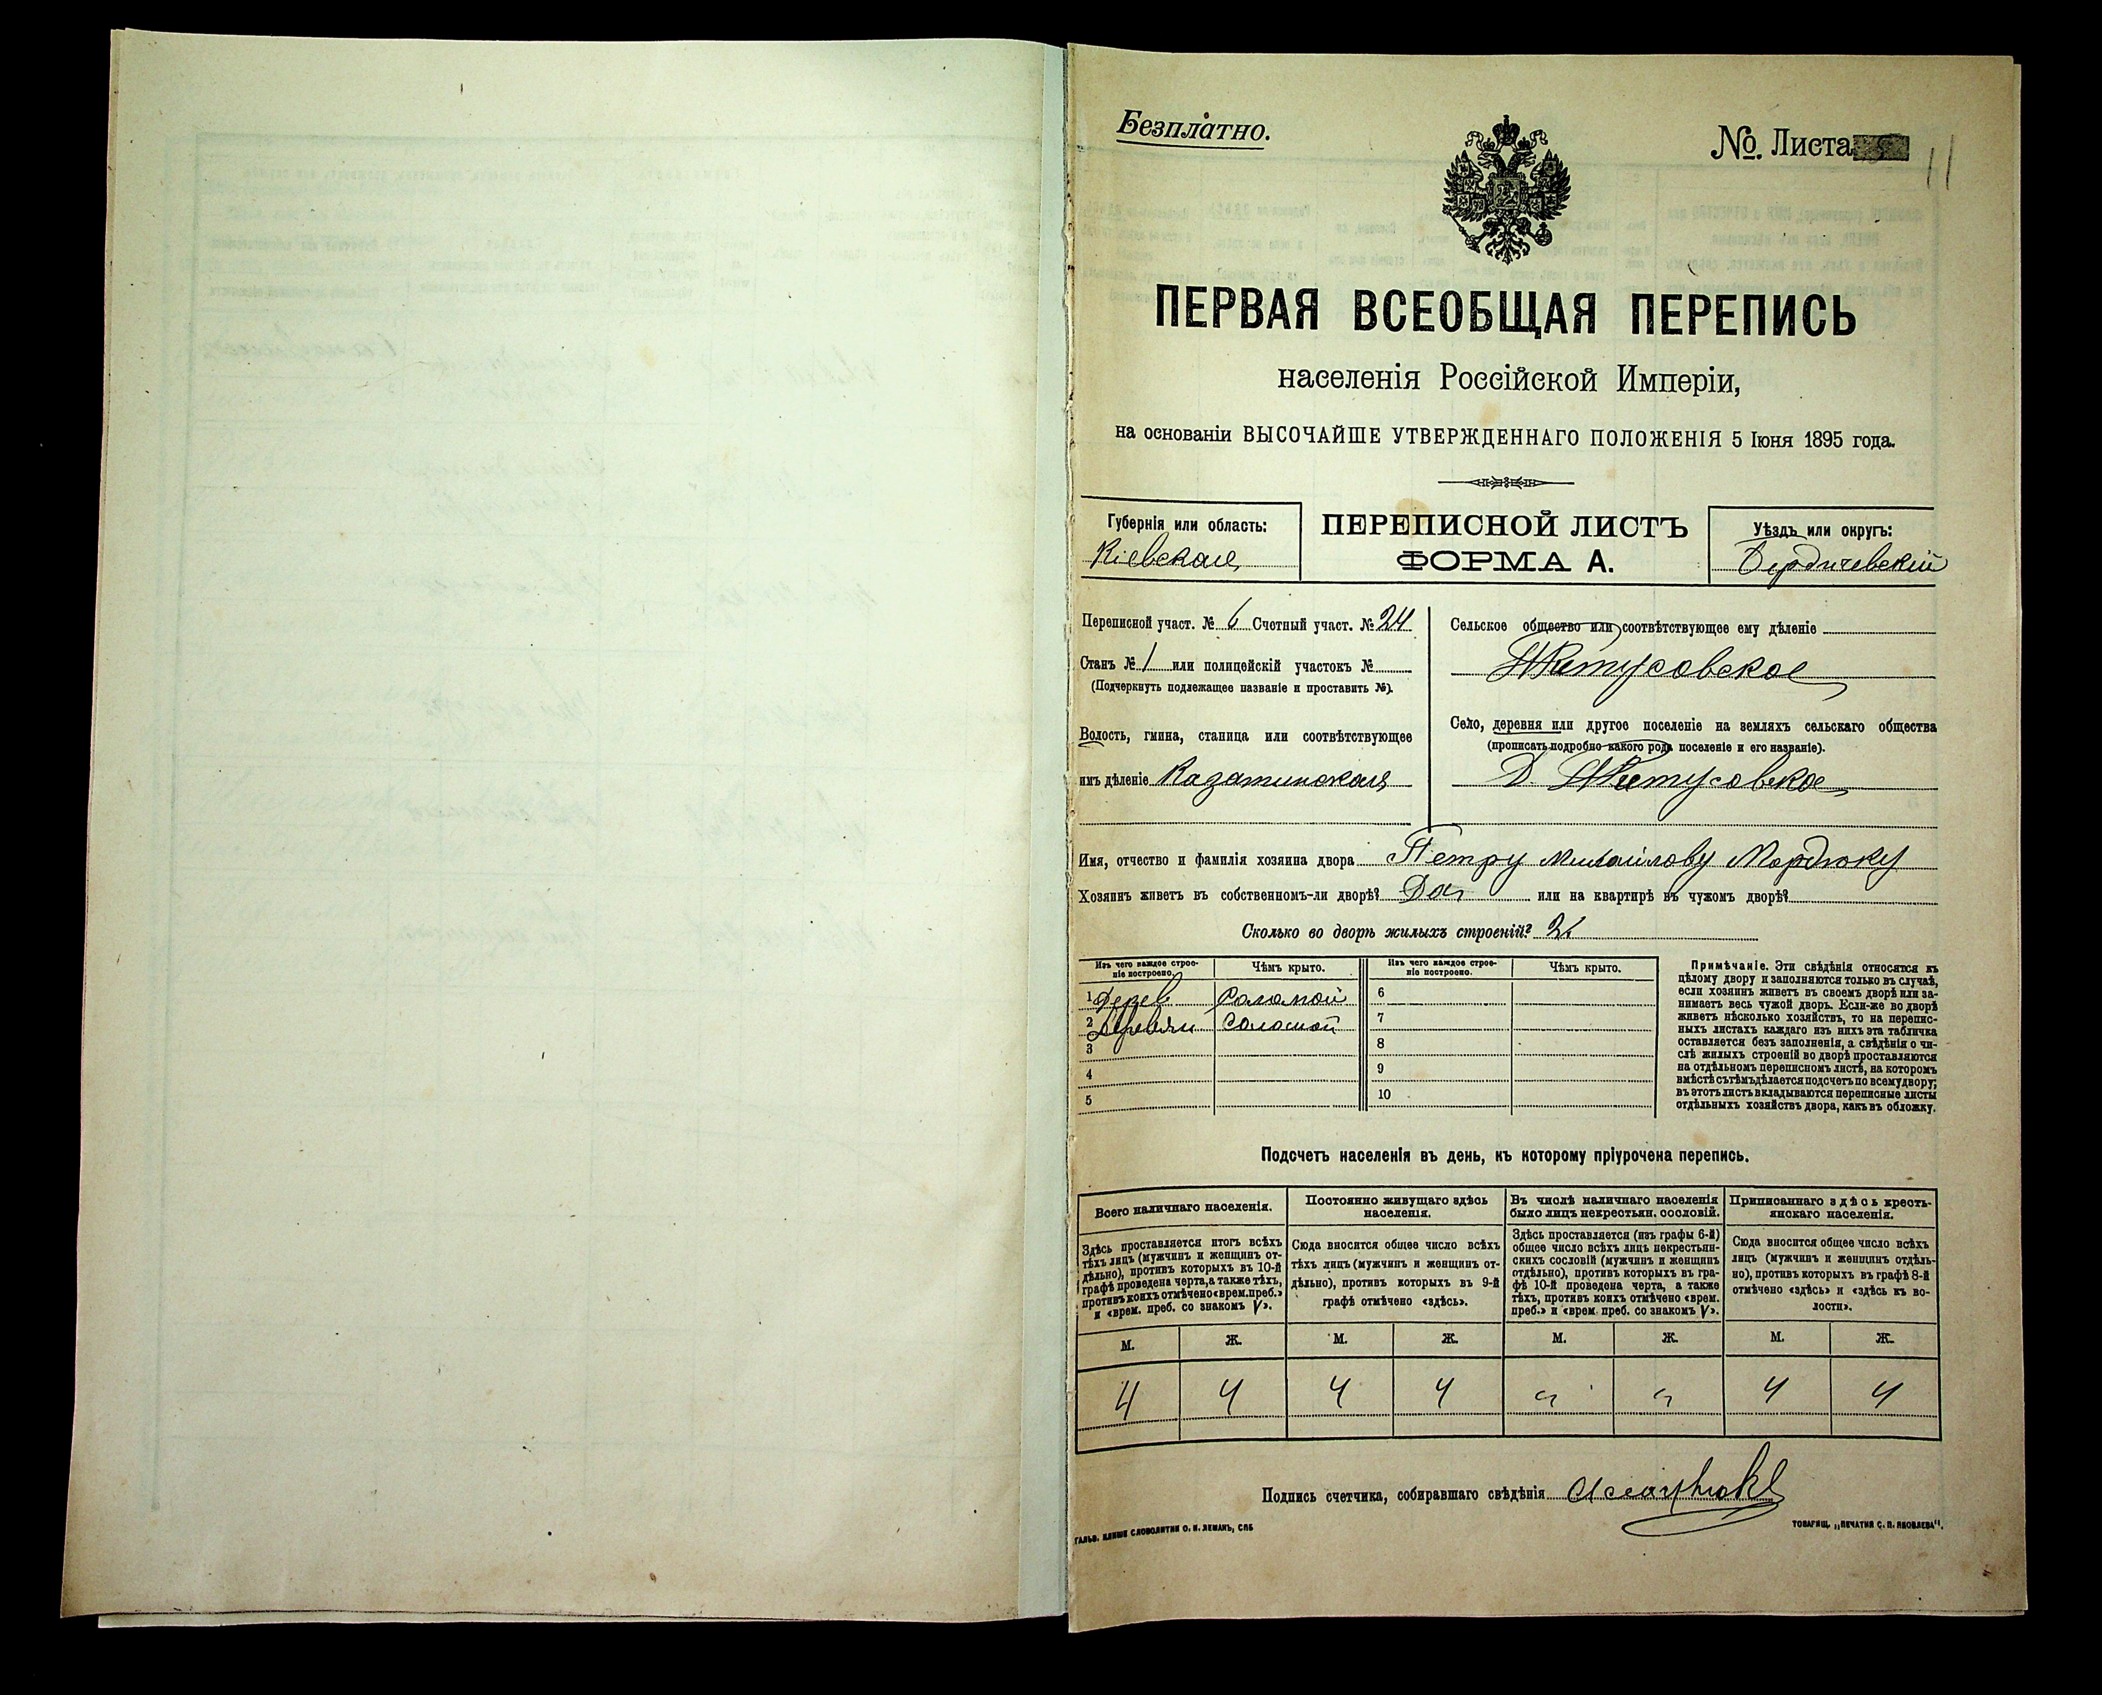 Безплатно.
№. Листа
11
ПЕРВАЯ ВСЕОБЩАЯ ПЕРЕПИСЬ
населенія Россійской Имперіи,
на основаніи ВЫСОЧАЙШЕ УТВЕРЖДЕННАГО ПОЛОЖЕНІЯ 5 Іюня 1895 года.
Губернія или область:
Кіевская
ПЕРЕПИСНОЙ ЛИСТЪ
ФОРМА А.
Уѣздъ или округъ:
Бердичевскій
Переписной участ. № 6 Счетный участ. № 24
Станъ № 1 или полицейскій участокъ №
(Подчеркнуть подлежащее названіе и проставить №).
Волость, гмина, станица или соотвѣтствующее
имъ дѣленіе Казатинская
Сельское общество или соотвѣтствующее ему дѣленіе
Село, деревня или другое поселеніе на земляхъ сельскаго общества
(прописать подробно какого рода поселеніе и его названіе).
Д.
Имя, отчество и фамилія хозяина двора Петру Михайлову Мордюку
Хозяинъ живетъ въ собственномъ-ли дворѣ? Да или на квартирѣ въ чужомъ дворѣ?
Сколько во дворѣ жилыхъ строеній? 2
Изъ чего каждое строе-
ніе построено.
Чѣмъ крыто.
Изъ чего каждое строе-
ніе построено.
Чѣмъ крыто.
1 Дерев Соломой 6
2 Деревян Соломой 7
3 8
4 9
5 10
Примѣчаніе. Эти свѣдѣнія относятся къ
цѣлому двору и заполняются только въ случаѣ,
если хозяинъ живетъ въ своемъ дворѣ или за-
нимаетъ весь чужой дворъ. Если-же во дворѣ
живетъ нѣсколько хозяйствъ, то на перепис-
ныхъ листахъ каждаго изъ нихъ эта табличка
оставляется безъ заполненія, а свѣдѣнія о чи-
слѣ жилыхъ строеній во дворѣ проставляются
на отдѣльномъ переписномъ листѣ, на которомъ
вмѣстѣ съ тѣмъ дѣлается подсчетъ по всему двору;
въ этотъ листъ вкладываются переписные листы
отдѣльныхъ хозяйствъ двора, какъ въ обложку.
Подсчетъ населенія въ день, къ которому пріурочена перепись.
Всего наличнаго населенія.
Здѣсь проставляется итогъ всѣхъ
тѣхъ лицъ (мужчинъ и женщинъ от-
дѣльно), противъ которыхъ въ 10-й
графѣ проведена черта, а также тѣхъ,
противъ коихъ отмѣчено «врем. преб.»
и «врем. преб. со знакомъ V».
Постоянно живущаго здѣсь
населенія.
Сюда вносится общее число всѣхъ
тѣхъ лицъ (мужчинъ и женщинъ от-
дѣльно), противъ которыхъ въ 9-й
графѣ отмѣчено «здѣсь».
Въ числѣ наличнаго населенія
было лицъ некрестьян. сословій.
Здѣсь проставляется (изъ графы 6-й)
общее число всѣхъ лицъ некрестьян-
скихъ сословій (мужчинъ и женщинъ
отдѣльно), противъ которыхъ въ гра-
фѣ 10-й проведена черта, а также
тѣхъ, противъ коихъ отмѣчено «врем.
преб.» и «врем. преб. со знакомъ V».
Приписаннаго здѣсь кресть-
янскаго населенія.
Сюда вносится общее число всѣхъ
лицъ (мужчинъ и женщинъ отдѣль-
но), противъ которыхъ въ графѣ 8-й
отмѣчено «здѣсь» и «здѣсь къ во-
лости».
М. Ж. М. Ж. М. Ж. М. Ж.
4 4 4 4 " " 4 4
Подпись счетчика, собиравшаго свѣдѣнія
ГАЛЬВ. КЛИШЕ СЛОВОЛИТНИ О. И. ЛЕМАНЪ, СПБ
ТОВАРИЩ. „ПЕЧАТНЯ С. П. ЯКОВЛЕВА".